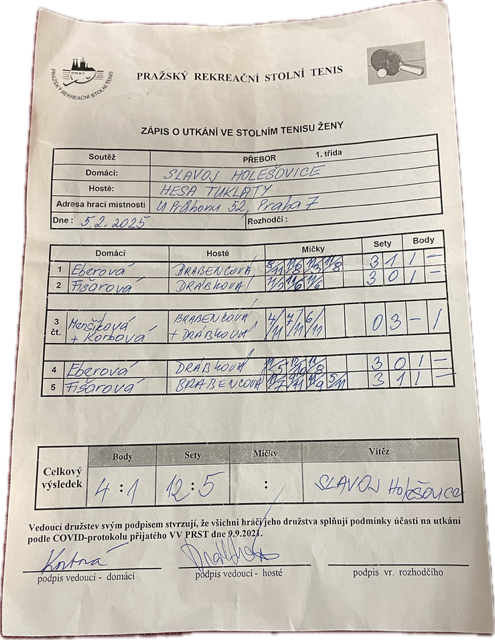 PRAŽSKÝ REKREAČNÍ STOLNÍ TENIS
PRAŽSKÝ REKREAČNÍ STOLNÍ TENIS
ZÁPIS O UTKÁNÍ VE STOLNÍM TENISU ŽENY
Soutěž PŘEBOR 1. třída
Domácí: SLAVOJ HOLEŠOVICE
Hosté: HESA TUKLATY
Adresa hrací místnosti U Průhonu 52, Praha 7
Dne: 5.2.2025 Rozhodčí:
Domácí Hosté Míčky Sety Body
1 Eberová BRABENCOVÁ 3 1 1 -
2 Fišarová DRÁBKOVÁ 3 0 1 -
3 čt. Menšíková + Korbová BRABENCOVÁ + DRÁBKOVÁ 4/11 7/11 6/11 0 3 - 1
4 Eberová DRÁBKOVÁ 3 0 1 -
5 Fišarová BRABENCOVÁ 3 1 1 -
Body Sety Míčky Vítěz
Celkový výsledek 4:1 12:5 : SLAVOJ Holešovice
Vedoucí družstev svým podpisem stvrzují, že všichni hráči jeho družstva splňují podmínky účasti na utkání
podle COVID-protokolu přijatého VV PRST dne 9.9.2021.
podpis vedoucí - domácí podpis vedoucí - hosté podpis vr. rozhodčího